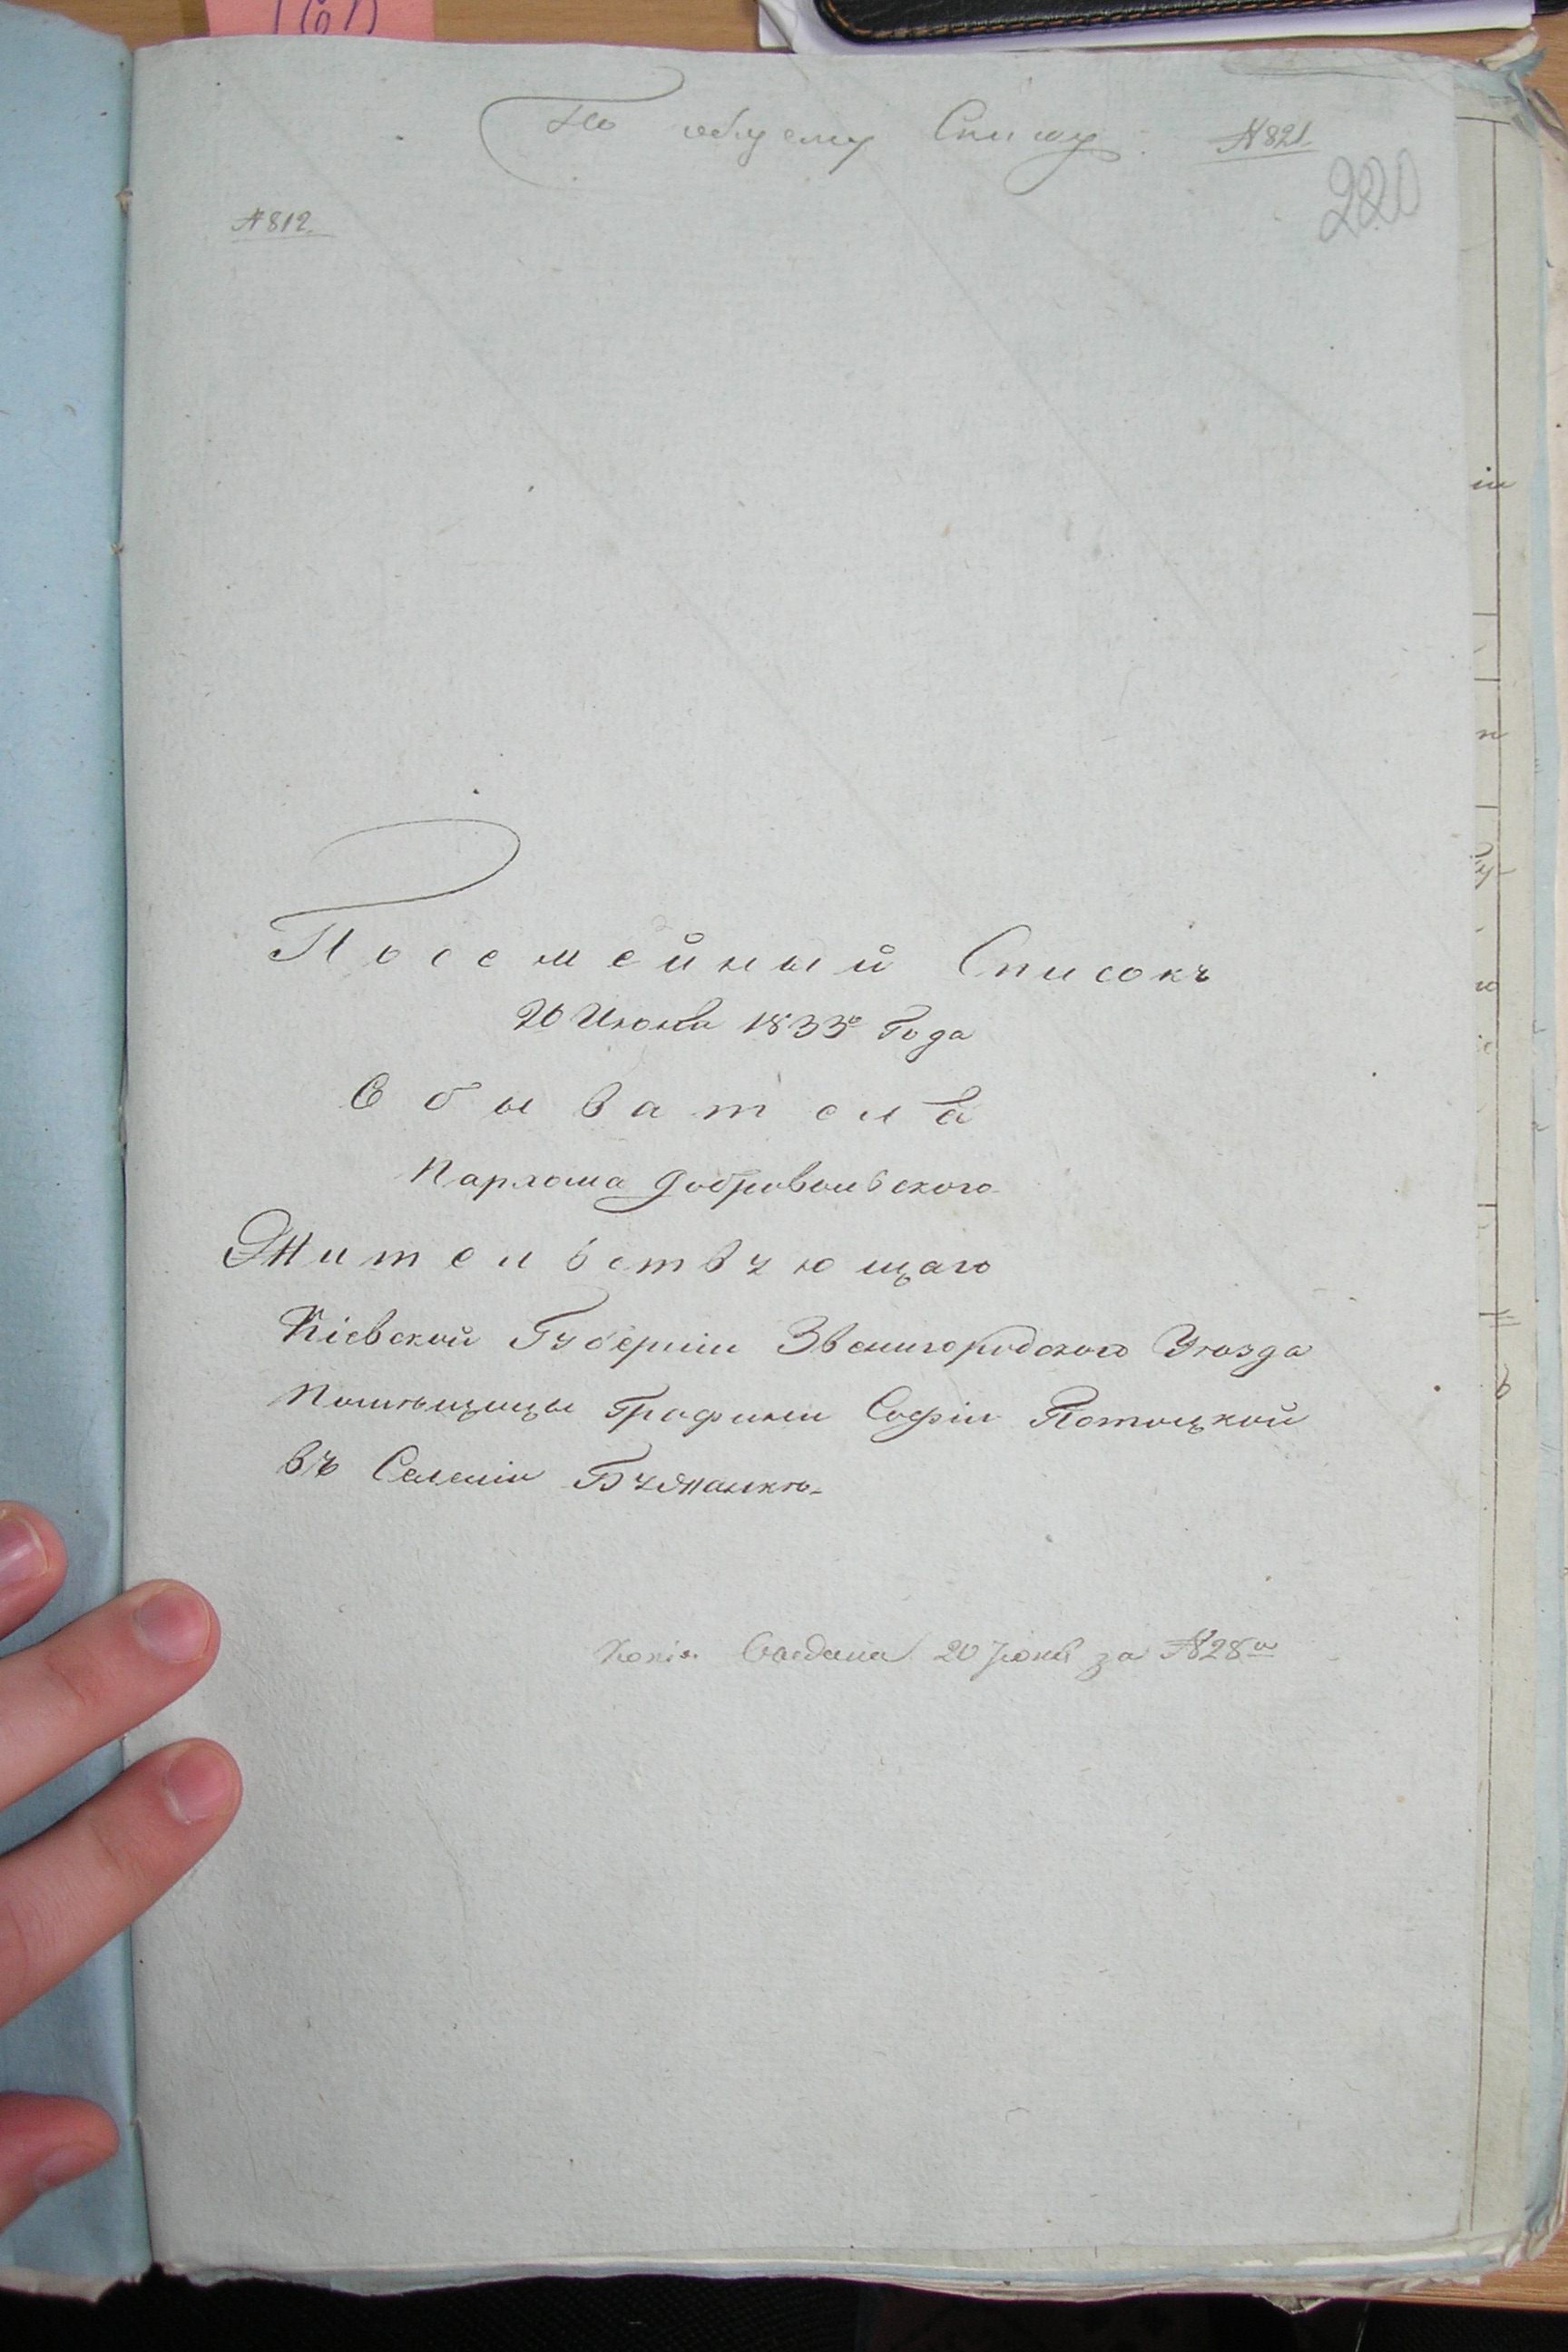 По общему Списку. №821.
280
№812.
Посемейный Списокъ
20 Июня 1833го Года
Обывателя
Пархома Добровольского
Жительствующаго
Кіевской Губерніи Звенигородского Уѣзда
Помѣщицы Графини Софіи Потоцкой
въ Селеніи Бужанкѣ.
Копія 20 за №28м